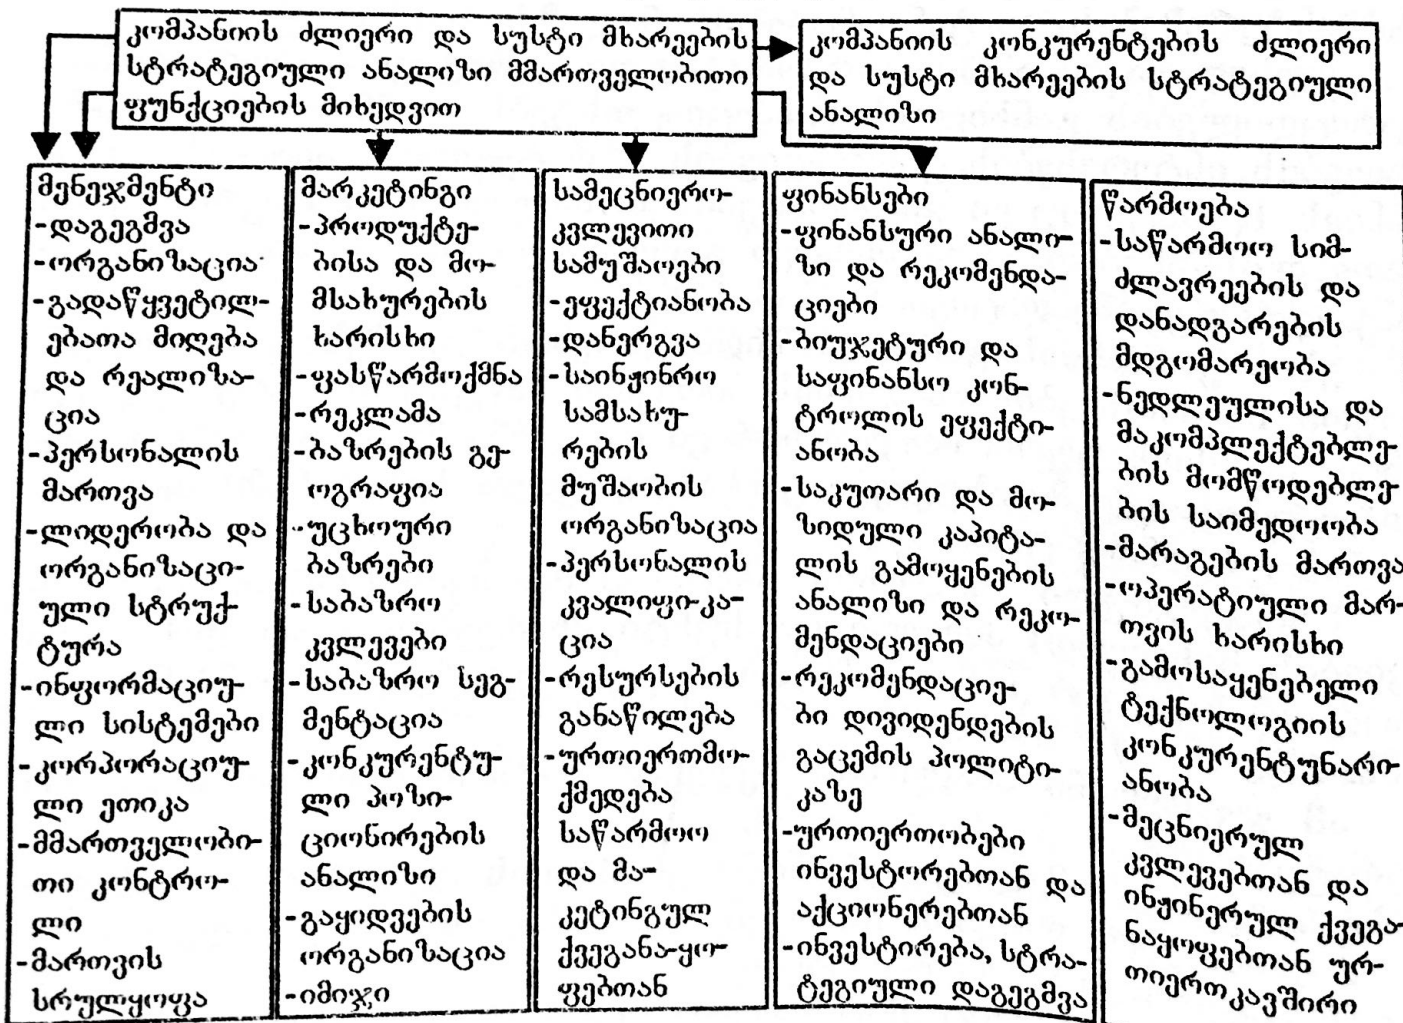 კომპანიის ძლიერი და სუსტი მხარეების
სტრატეგიული ანალიზი მმართველობითი
ფუნქციების მიხედვით
კომპანიის კონკურენტების ძლიერი
და სუსტი მხარეების სტრატეგიული
ანალიზი
მენეჯმენტი
-დაგეგმვა
-ორგანიზაცია
-გადაწყვეტილ-
ებათა მიღება
და რეალიზა-
ცია
-პერსონალის
მართვა
-ლიდერობა და
ორგანიზაცი-
ული სტრუქ-
ტურა
-ინფორმაციუ-
ლი სისტემები
-კორპორაციუ-
ლი ეთიკა
-მმართველობი-
თი კონტრო-
ლი
-მართვის
სრულყოფა
მარკეტინგი
-პროდუქტე-
ბისა და მო-
მსახურების
ხარისხი
-ფასწარმოქმნა
-რეკლამა
-ბაზრების გე-
ოგრაფია
-უცხოური
ბაზრები
-საბაზრო
კვლევები
-საბაზრო სეგ-
მენტაცია
-კონკურენტუ-
ლი პოზი-
ციონირების
ანალიზი
-გაყიდვების
ორგანიზაცია
-იმიჯი
სამეცნიერო-
კვლევითი
სამუშაოები
-ეფექტიანობა
-დანერგვა
-საინჟინრო
სამსახუ-
რების
მუშაობის
ორგანიზაცია
-პერსონალის
კვალიფი-კა-
ცია
-რესურსების
განაწილება
-ურთიერთმო-
ქმედება
საწარმოო
და მა-
კეტინგულ
ქვეგანა-ყო-
ფებთან
ფინანსები
-ფინანსური ანალი-
ზი და რეკომენდა-
ციები
-ბიუჯეტური და
საფინანსო კონ-
ტროლის ეფექტი-
ანობა
-საკუთარი და მო-
ზიდული კაპიტა-
ლის გამოყენების
ანალიზი და რეკო-
მენდაციები
-რეკომენდაციე-
ბი დივიდენდების
გაცემის პოლიტი-
კაზე
-ურთიერთობები
ინვესტორებთან და
აქციონერებთან
-ინვესტირება, სტრა-
ტეგიული დაგეგმვა
წარმოება
-საწარმოო სიმ-
ძლავრეების და
დანადგარების
მდგომარეობა
-ნედლეულისა და
მაკომპლექტებლე-
ბის მომწოდებლე-
ბის საიმედოობა
-მარაგების მართვა
-ოპერატიული მარ-
თვის ხარისხი
-გამოსაყენებელი
ტექნოლოგიის
კონკურენტუნარი-
ანობა
-მეცნიერულ
კვლევებთან და
ინჟინერულ ქვეგა-
ნაყოფებთან ურ-
თიერთკავშირი